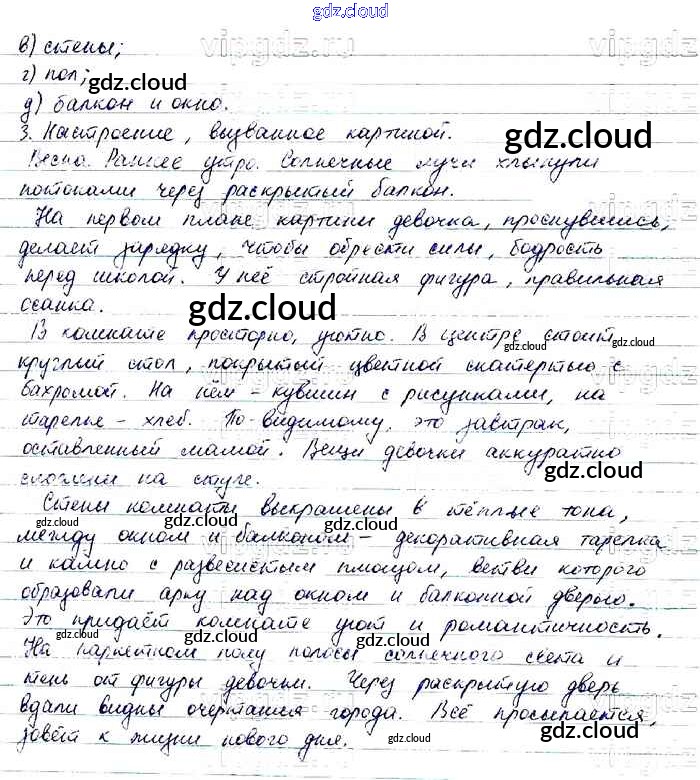 gdz.cloud
в) стены;
г) пол;
gdz.cloud
д) балкон и окно.
gdz.cloud
3. Настроение, вызванное картиной.
Весна. Раннее утро. Солнечные лучи хлынули
потоками через раскрытый балкон.
На первом плане картины девочка, проснувшись,
делает зарядку, чтобы обрести силы, бодрость
перед школой. У неё стройная фигура, правильная
осанка.
gdz.cloud
В комнате просторно, уютно. В центре стоит
gdz.cloud
круглый стол, покрытый цветной скатертью с
бахромой. На нём - кувшин с рисунками, на
тарелке - хлеб. По-видимому, это завтрак,
оставленный мамой. Вещи девочки аккуратно
сложены на стуле.
gdz.cloud
Стены комнаты выкрашены в тёплые тона,
gdz.cloud gdz.cloud gdz.cloud
между окном и балконом - декоративная тарелка
и кашпо с развесистым плющом, ветви которого
образовали арку над окном и балконной дверью.
Это придаёт комнате уют и романтичность.
gdz.cloud gdz.cloud
На паркетном полу полосы солнечного света и
тень от фигуры девочки. Через раскрытую дверь
вдали видны очертания города. Всё просыпается,
зовёт к жизни нового дня.
gdz.cloud gdz.cloud